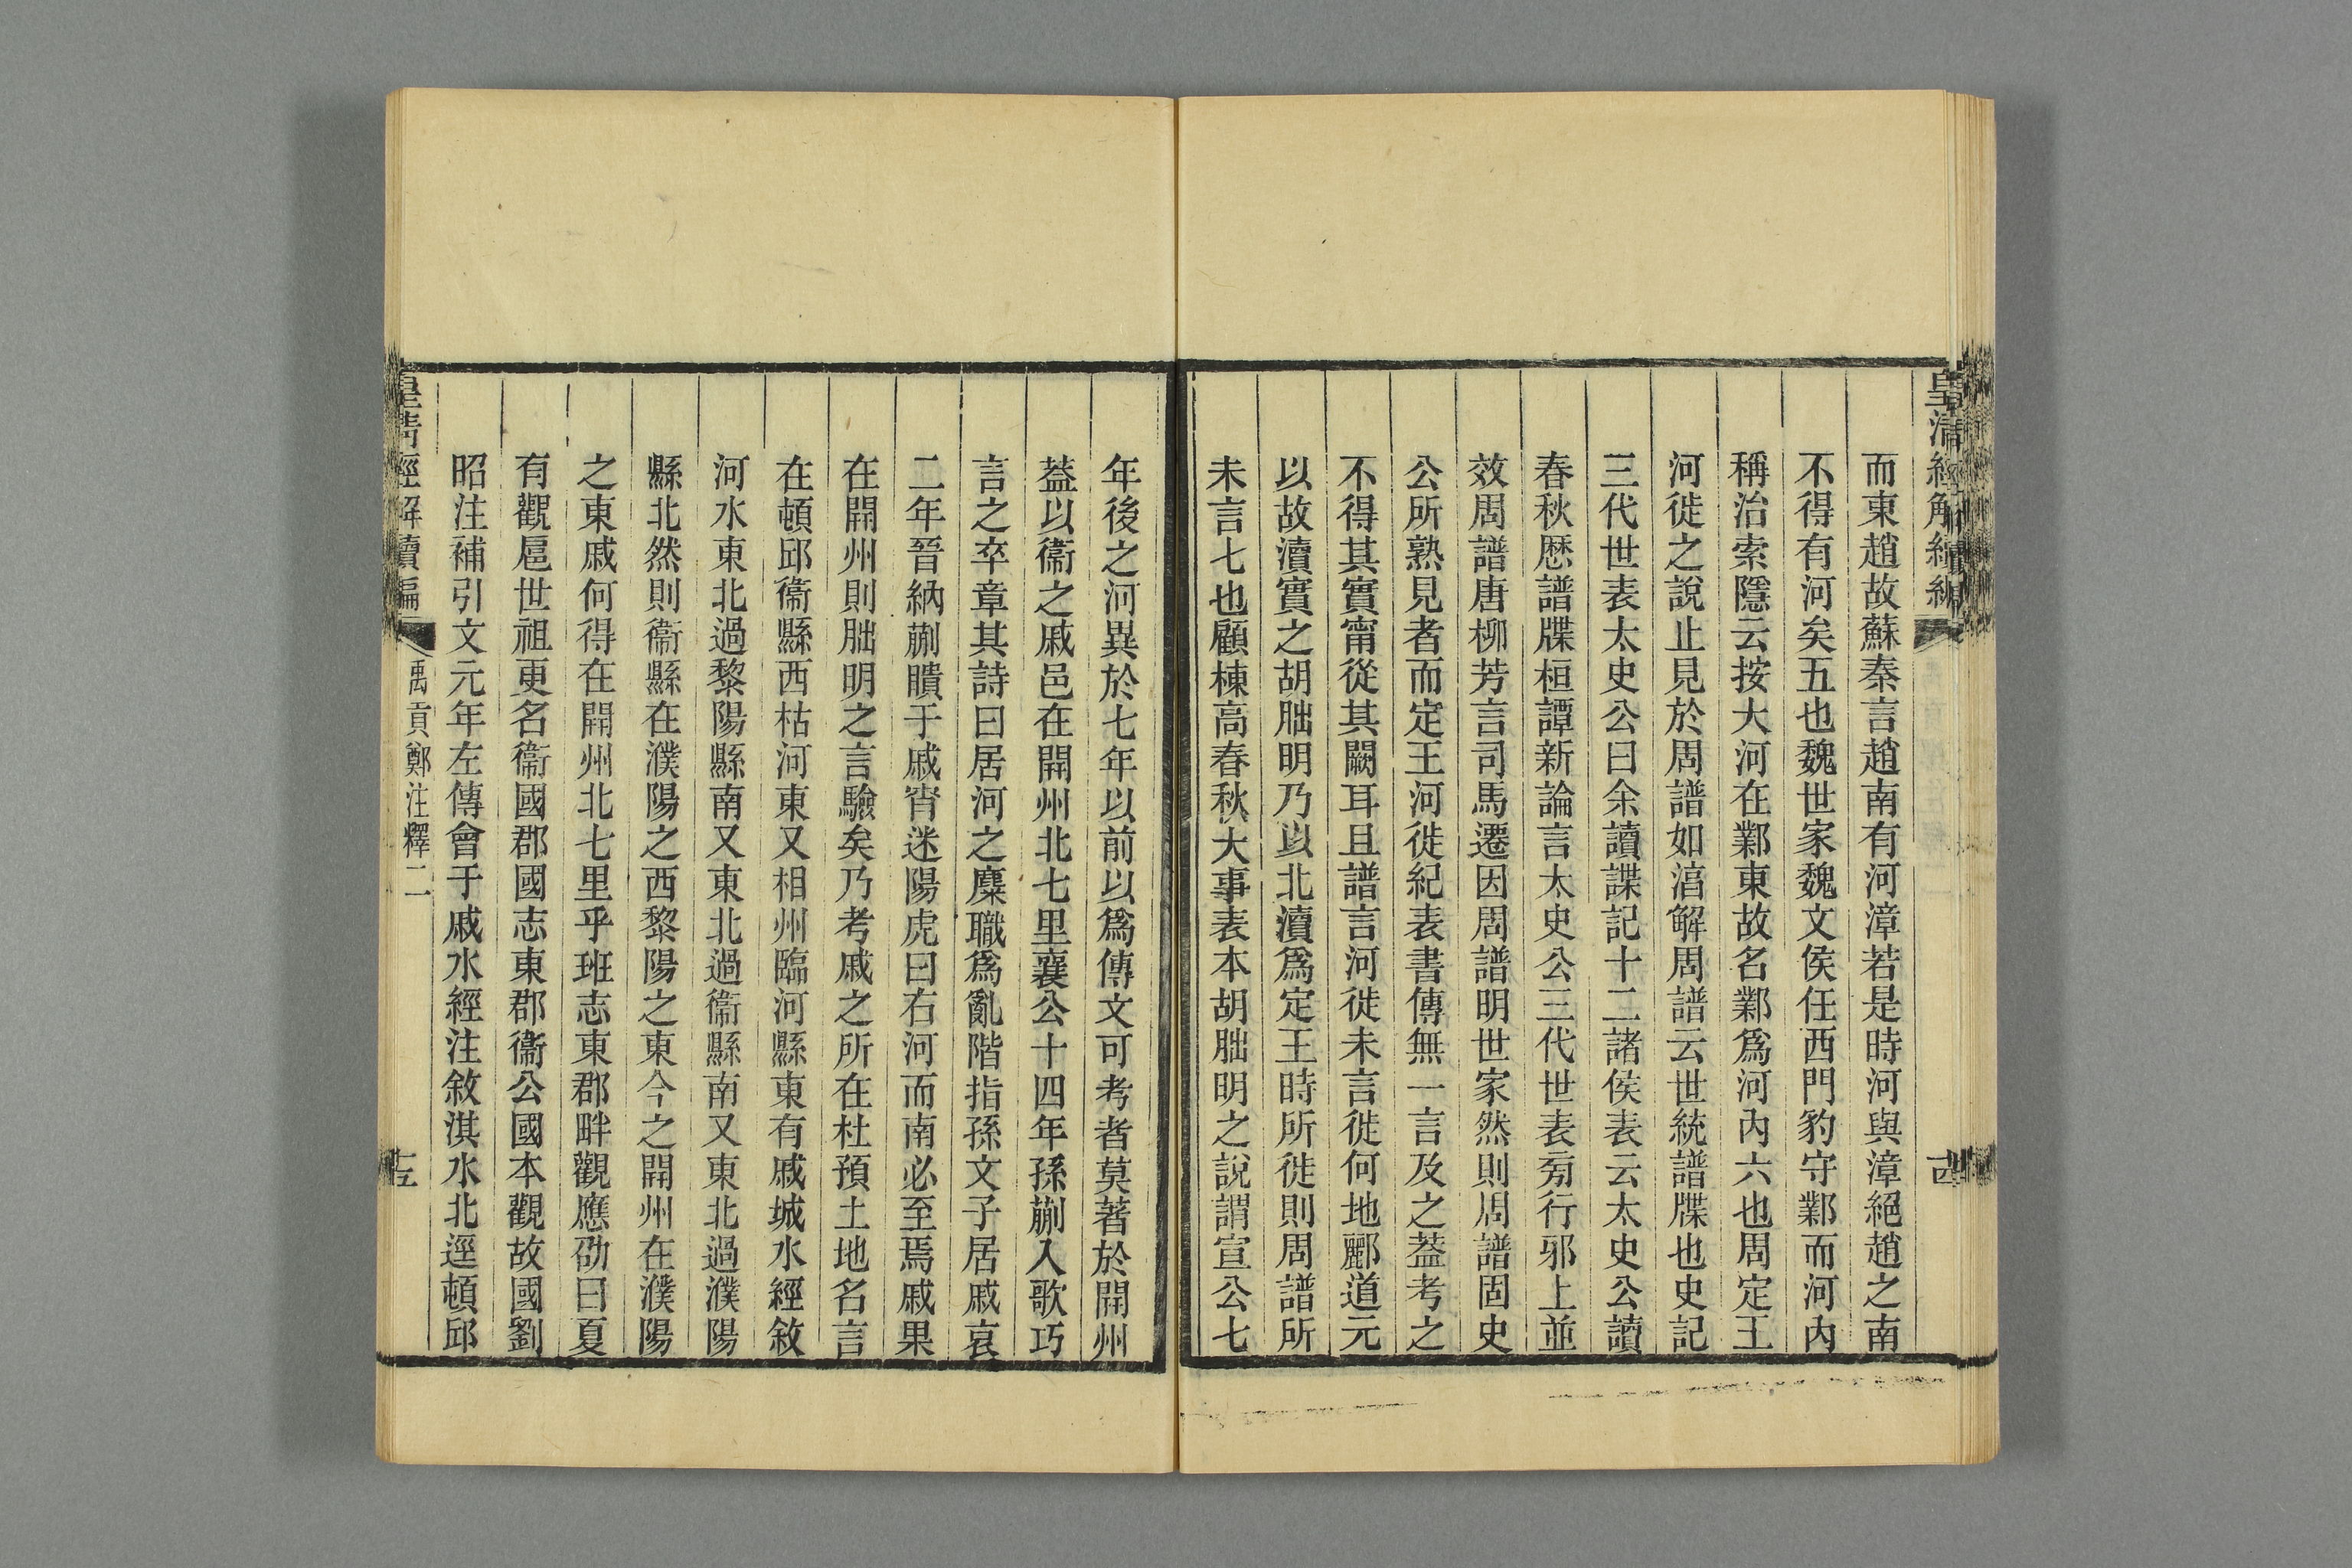 皇清經解續編
而東趙故蘇秦言趙南有河漳若是時河與漳絕趙之南
不得有河矣五也魏世家魏文侯任西門豹守鄴而河內
稱治索隱云按大河在鄴東故名鄴爲河內六也周定王
河徙之說止見於周譜如湻解周譜云世統譜牒也史記
三代世表太史公曰余讀諜記十二諸侯表云太史公讀
春秋厯譜牒桓譚新論言太史公三代世表旁行邪上並
效周譜唐柳芳言司馬遷因周譜明世家然則周譜固史
公所熟見者而定王河徙紀表書傳無一言及之葢考之
不得其實甯從其闕耳且譜言河徙未言徙何地酈道元
以故瀆實之胡朏明乃以北瀆爲定王時所徙則周譜所
未言七也顧棟高春秋大事表本胡朏明之說謂宣公七
年後之河異於七年以前以爲傳文可考者莫著於開州
葢以衞之戚邑在開州北七里襄公十四年孫蒯入歌巧
言之卒章其詩曰居河之麋職爲亂階指孫文子居戚哀
二年晉納蒯聵于戚宵迷陽虎曰右河而南必至焉戚果
在開州則朏明之言驗矣乃考戚之所在杜預土地名言
在頓邱衞縣西枯河東又相州臨河縣東有戚城水經敘
河水東北過黎陽縣南又東北過衞縣南又東北過濮陽
縣北然則衞縣在濮陽之西黎陽之東今之開州在濮陽
之東戚何得在開州北七里乎班志東郡畔觀應劭曰夏
有觀扈世祖更名衞國郡國志東郡衞公國本觀故國劉
昭注補引文元年左傳會于戚水經注敘淇水北逕頓邱
皇清經解續編 禹貢鄭注釋二